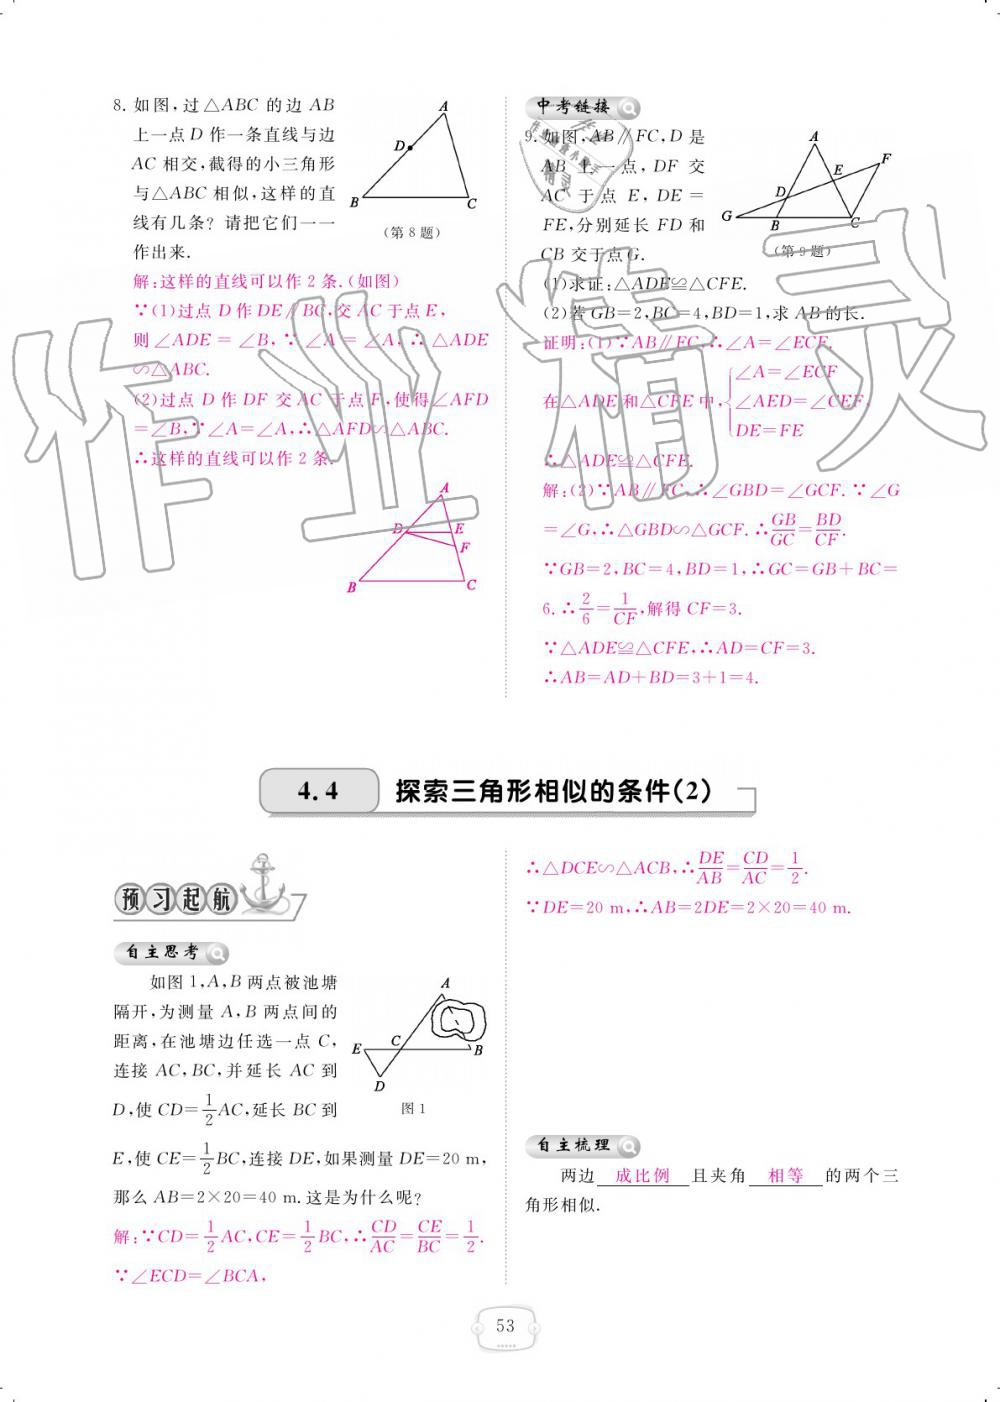 8. 如图,过△ABC 的边 AB
上一点 D 作一条直线与边
AC 相交,截得的小三角形
与△ABC 相似,这样的直
线有几条? 请把它们一一
作出来.
A
D
B
C
(第 8 题)
解:这样的直线可以作 2 条.(如图)
∵(1)过点 D 作 DE∥BC,交 AC 于点 E,
则∠ADE=∠B,∵∠A=∠A,∴△ADE
∽△ABC.
(2)过点 D 作 DF 交 AC 于点 F,使得∠AFD
=∠B,∵∠A=∠A,∴△AFD∽△ABC.
∴这样的直线可以作 2 条.
A
D
E
F
B
C
中考链接
9. 如图,AB∥FC,D 是
AB 上一点,DF 交
AC 于点 E,DE=
FE,分别延长 FD 和
CB 交于点 G.
A
F
E
D
G
B
C
(第 9 题)
(1)求证:△ADE≌△CFE.
(2)若 GB=2,BC=4,BD=1,求 AB 的长.
证明:(1)∵AB∥FC,∴∠A=∠ECF.
在△ADE 和△CFE 中,{∠A=∠ECF
∠AED=∠CEF,
DE=FE
∴△ADE≌△CFE.
解:(2)∵AB∥FC,∴∠GBD=∠GCF.∵∠G
=∠G,∴△GBD∽△GCF.∴GB/GC=BD/CF.
∵GB=2,BC=4,BD=1,∴GC=GB+BC=
6.∴2/6=1/CF,解得 CF=3.
∵△ADE≌△CFE,∴AD=CF=3.
∴AB=AD+BD=3+1=4.
4.4 探索三角形相似的条件(2)
预习起航
自主思考
如图 1,A,B 两点被池塘
隔开,为测量 A,B 两点间的
距离,在池塘边任选一点 C,
连接 AC,BC,并延长 AC 到
D,使 CD=1/2AC,延长 BC 到
A
C
E
B
D
图 1
E,使 CE=1/2BC,连接 DE,如果测量 DE=20 m,
那么 AB=2×20=40 m.这是为什么呢?
解:∵CD=1/2AC,CE=1/2BC,∴CD/AC=CE/BC=1/2.
∵∠ECD=∠BCA,
∴△DCE∽△ACB,∴DE/AB=CD/AC=1/2.
∵DE=20 m,∴AB=2DE=2×20=40 m.
自主梳理
两边 成比例 且夹角 相等 的两个三
角形相似.
53
作业精灵